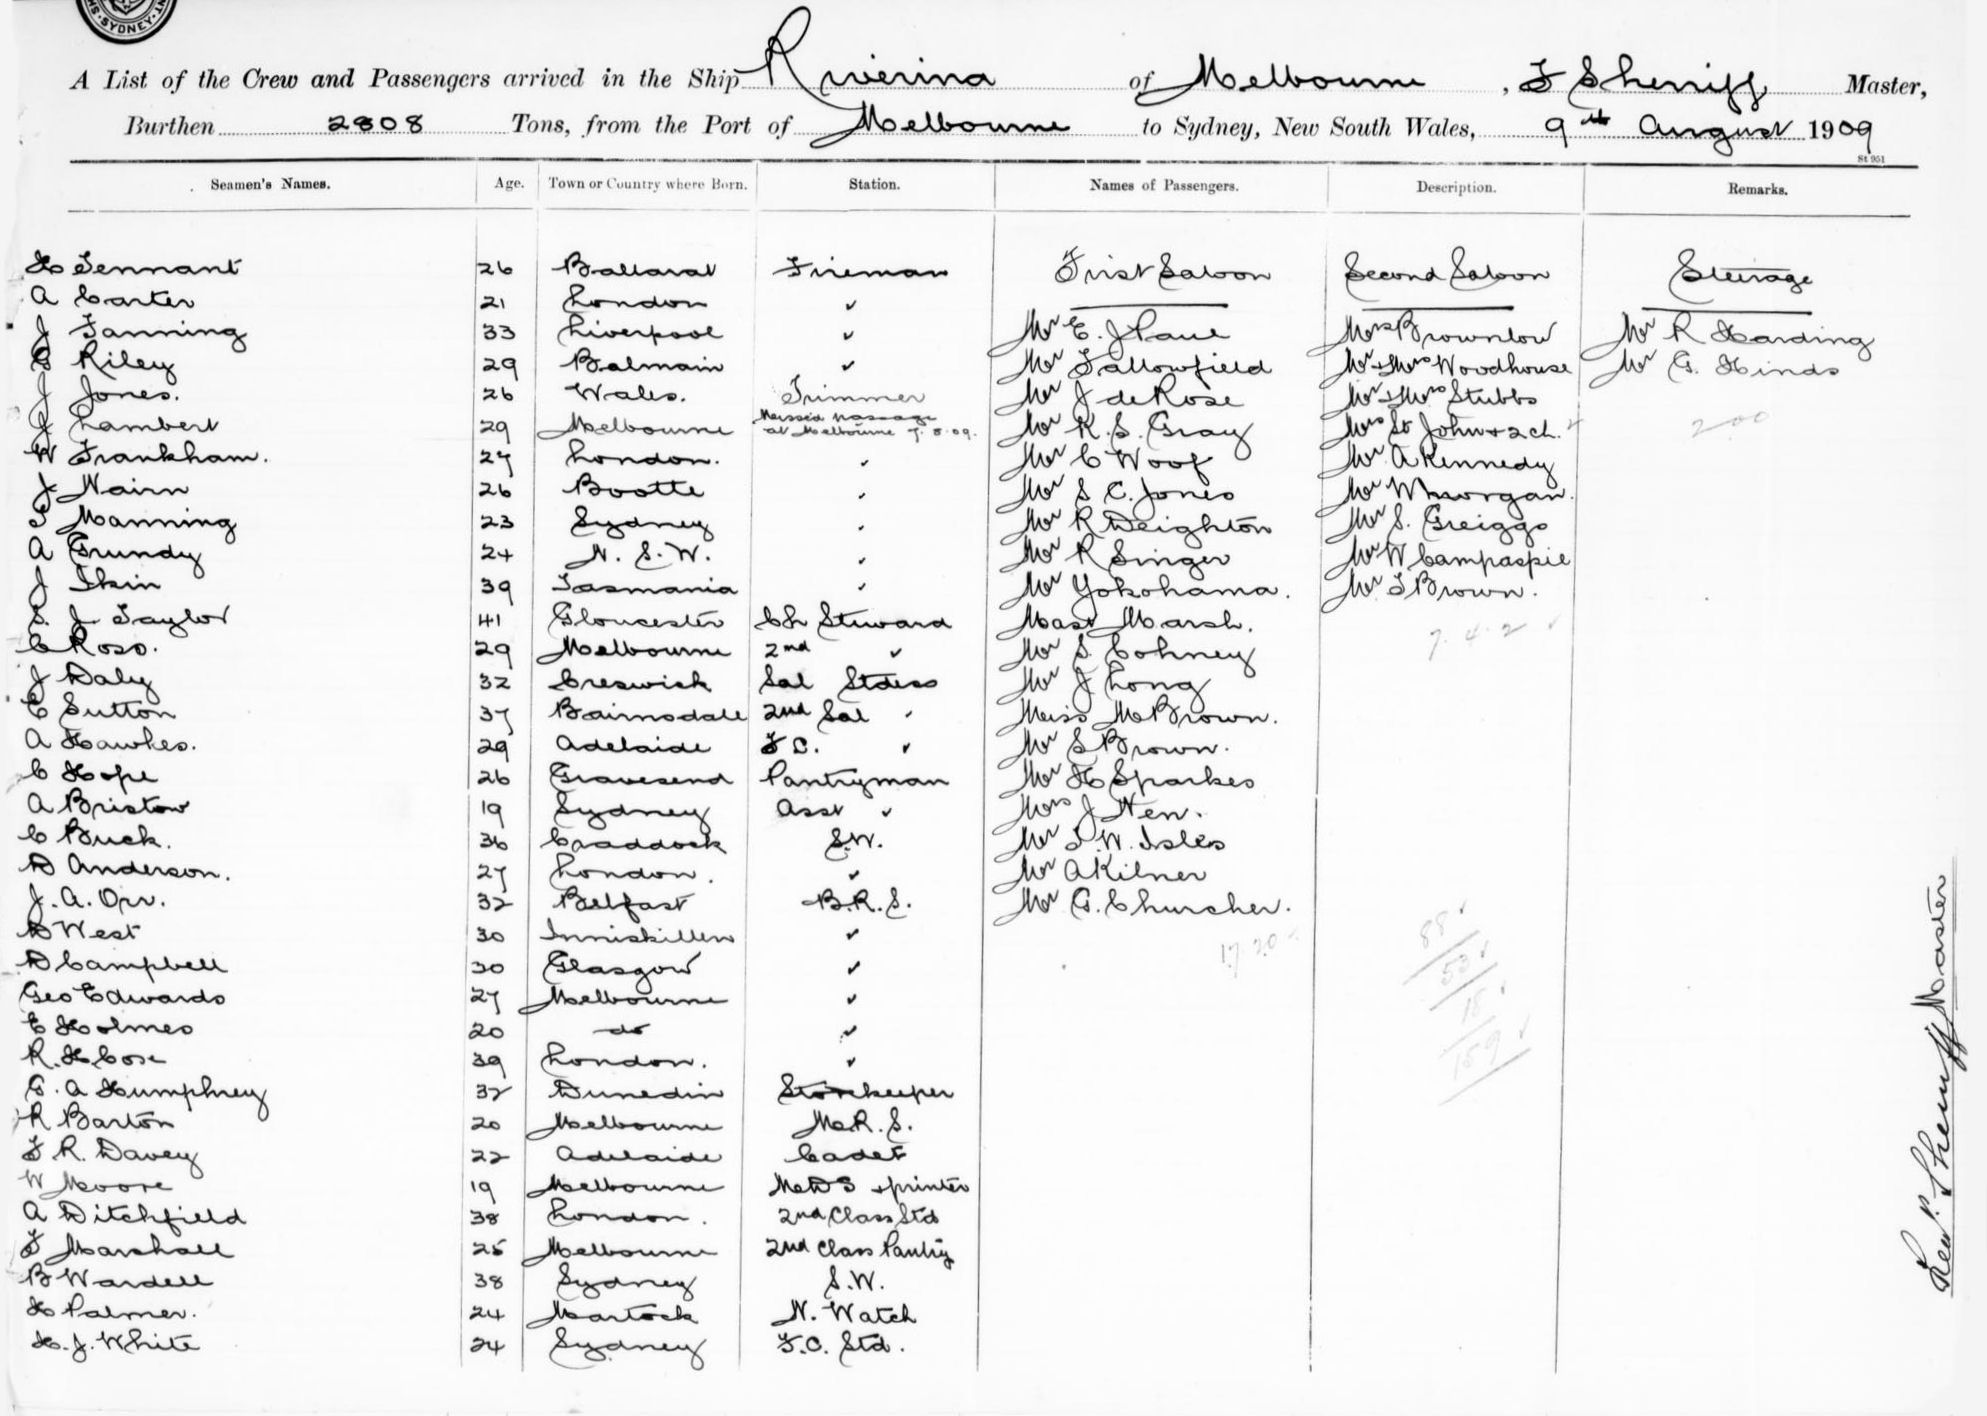 SYDNEY
A List of the Crew and Passengers arrived in the Ship Riverina of Melbourne, F Sherriff Master,
Burthen 2808 Tons, from the Port of Melbourne to Sydney, New South Wales, 9th August 1909
St 951
Seamen's Names. Age. Town or Country where Born. Station. Names of Passengers. Description. Remarks.
H Tennant 26 Ballarat Fireman First Saloon Second Saloon Steerage
A Carter 21 London ✓
J Fanning 33 Liverpool ✓ Mr E. J Paul Mrs Brownlow Mr R Harding
G Riley 29 Balmain ✓ Mr Fallowfield Mr + Mrs Woodhouse Mr G. Hinds
J Jones. 26 Wales. Trimmer Mr J de Rose Mr + Mrs Stubbs
J Lambert 29 Melbourne Missed passage at Melbourne 7.8.09. Mr K. S. Gray Mrs St John + 2 ch. 200
W Frankham. 27 London. ✓ Mr C Woof Mr A Kennedy
J Nairn 26 Bootte ✓ Mr S C. Jones Mr W Morgan.
T Manning 23 Sydney ✓ Mr R Deighton Mr S. Greiggs
A Grundy 24 N. S. W. ✓ Mr R Singer Mr W Campaspie
J Ikin 39 Tasmania ✓ Mr Yokohama. Mr T Brown.
S. J Taylor 41 Gloucester Ch Steward Mast Marsh. 7.4.2 ✓
C Ross. 29 Melbourne 2nd ✓ Mr S. Cohney
J Daly 32 Creswick Sal Stdess Mr J Long
E Sutton 37 Bairnsdale 2nd Sal ✓ Miss M Brown.
A Hawkes. 29 Adelaide F C. ✓ Mr S Brown.
C Hope 26 Gravesend Pantryman Mr H Sparkes
A Bristow 19 Sydney Asst ✓ Mrs J New.
C Buck. 36 Craddock S.W. Mr T. W. Isles
D Anderson. 27 London. ✓ Mr A Kilner
J. A. Orr. 32 Belfast B.R.S. Mr G. Churcher.
D West 30 Inniskillen ✓ 17.20 88 ✓
D Campbell 30 Glasgow ✓ 53 ✓
Geo Edwards 27 Melbourne ✓ 18 ✓
E Holmes 20 do ✓ 159 ✓
R. H Cose 39 London. ✓
G. A Humphrey 32 Dunedin Storekeeper
R Barton 20 Melbourne M.R.S.
F R. Davey 22 Adelaide Cadet
W Moore 19 Melbourne M.D S + printer
A Ditchfield 38 London. 2nd Class Std
F Marshall 25 Melbourne 2nd Class Pantry
B Wardell 38 Sydney S.W.
H Palmer. 24 Martock N. Watch
H. J. White 24 Sydney F.C. Std.
Sherriff Master